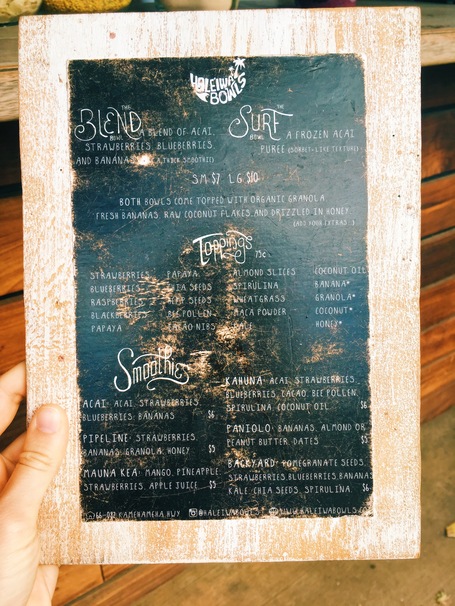 HALEIWA
BOWLS
THE
BLEND
BOWL
A BLEND OF ACAI,
STRAWBERRIES, BLUEBERRIES
AND BANANAS (A THICK SMOOTHIE)
THE
SURF
BOWL
A FROZEN ACAI
PUREE (SORBET-LIKE TEXTURE)
SM $7 LG $10
BOTH BOWLS COME TOPPED WITH ORGANIC GRANOLA
FRESH BANANAS, RAW COCONUT FLAKES AND DRIZZLED IN HONEY
(ADD YOUR EXTRAS...)
Toppings
75¢
STRAWBERRIES
BLUEBERRIES
RASPBERRIES
BLACKBERRIES
PAPAYA
PAPAYA
CHIA SEEDS
HEMP SEEDS
BEE POLLEN
CACAO NIBS
ALMOND SLICES
SPIRULINA
WHEATGRASS
MACA POWDER
KALE
COCONUT OIL
BANANA*
GRANOLA*
COCONUT*
HONEY*
Smoothies
ACAI: ACAI, STRAWBERRIES,
BLUEBERRIES, BANANAS $6
PIPELINE: STRAWBERRIES,
BANANAS, GRANOLA, HONEY $5
MAUNA KEA: MANGO, PINEAPPLE,
STRAWBERRIES, APPLE JUICE $5
KAHUNA: ACAI, STRAWBERRIES,
BLUEBERRIES, CACAO, BEE POLLEN,
SPIRULINA, COCONUT OIL $6
PANIOLO: BANANAS, ALMOND OR
PEANUT BUTTER, DATES $5
BACKYARD: POMEGRANATE SEEDS,
STRAWBERRIES, BLUEBERRIES, BANANAS,
KALE, CHIA SEEDS, SPIRULINA $6
66-082 KAMEHAMEHA HWY @HALEIWABOWLS WWW.HALEIWABOWLS.COM